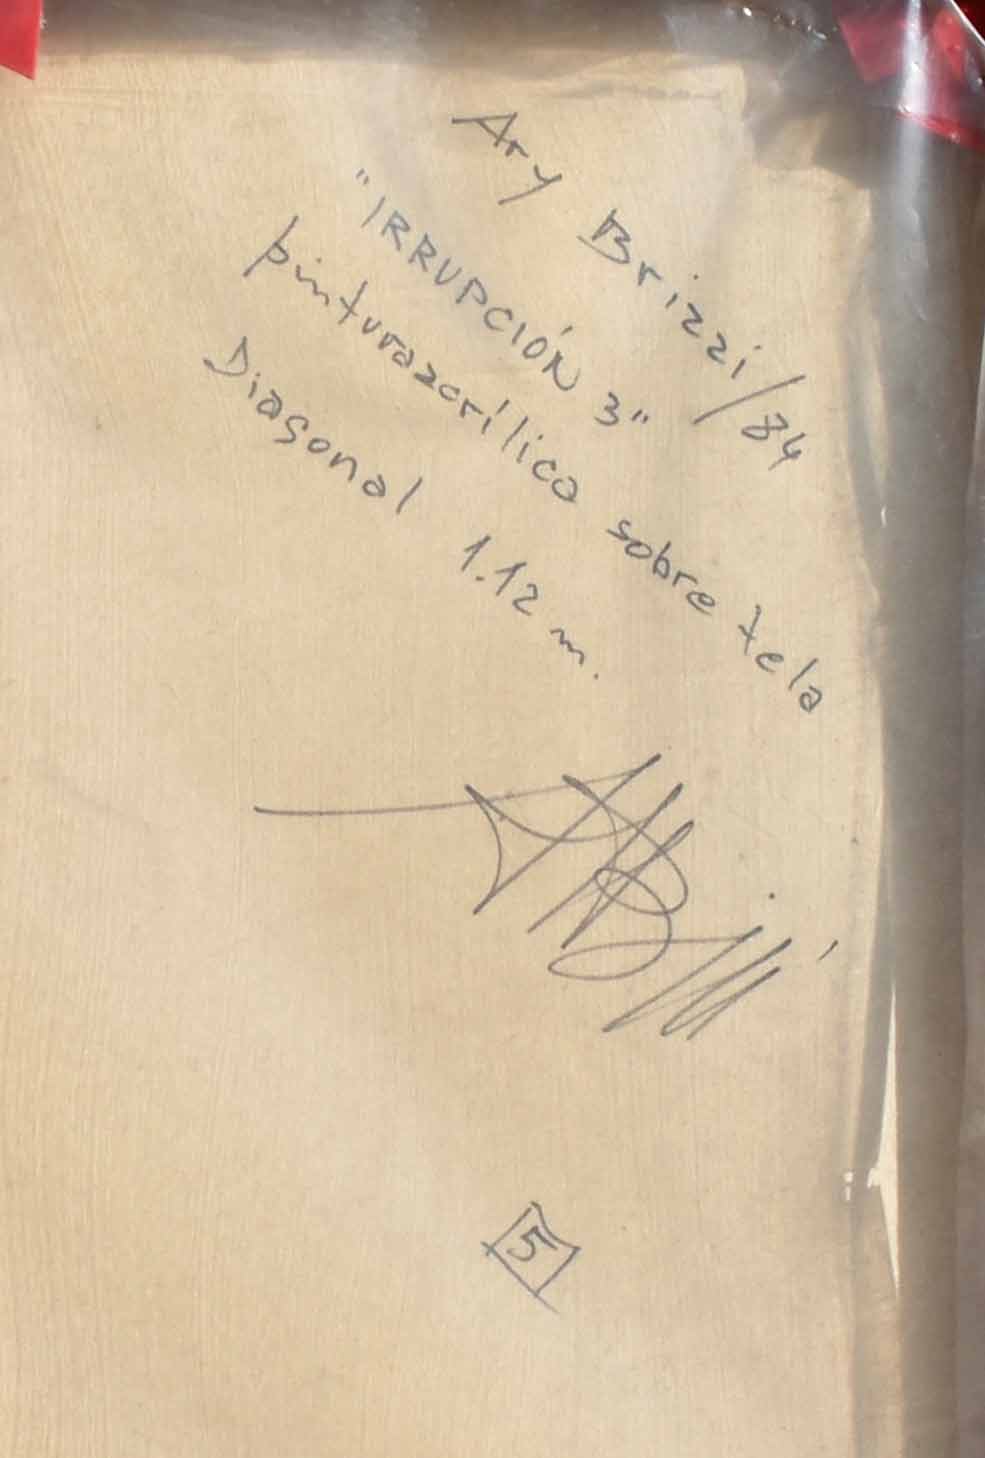 Ary Brizzi/84
"IRRUPCIÓN 3"
pintura acrílica sobre tela
Diagonal 1.12 m.
5